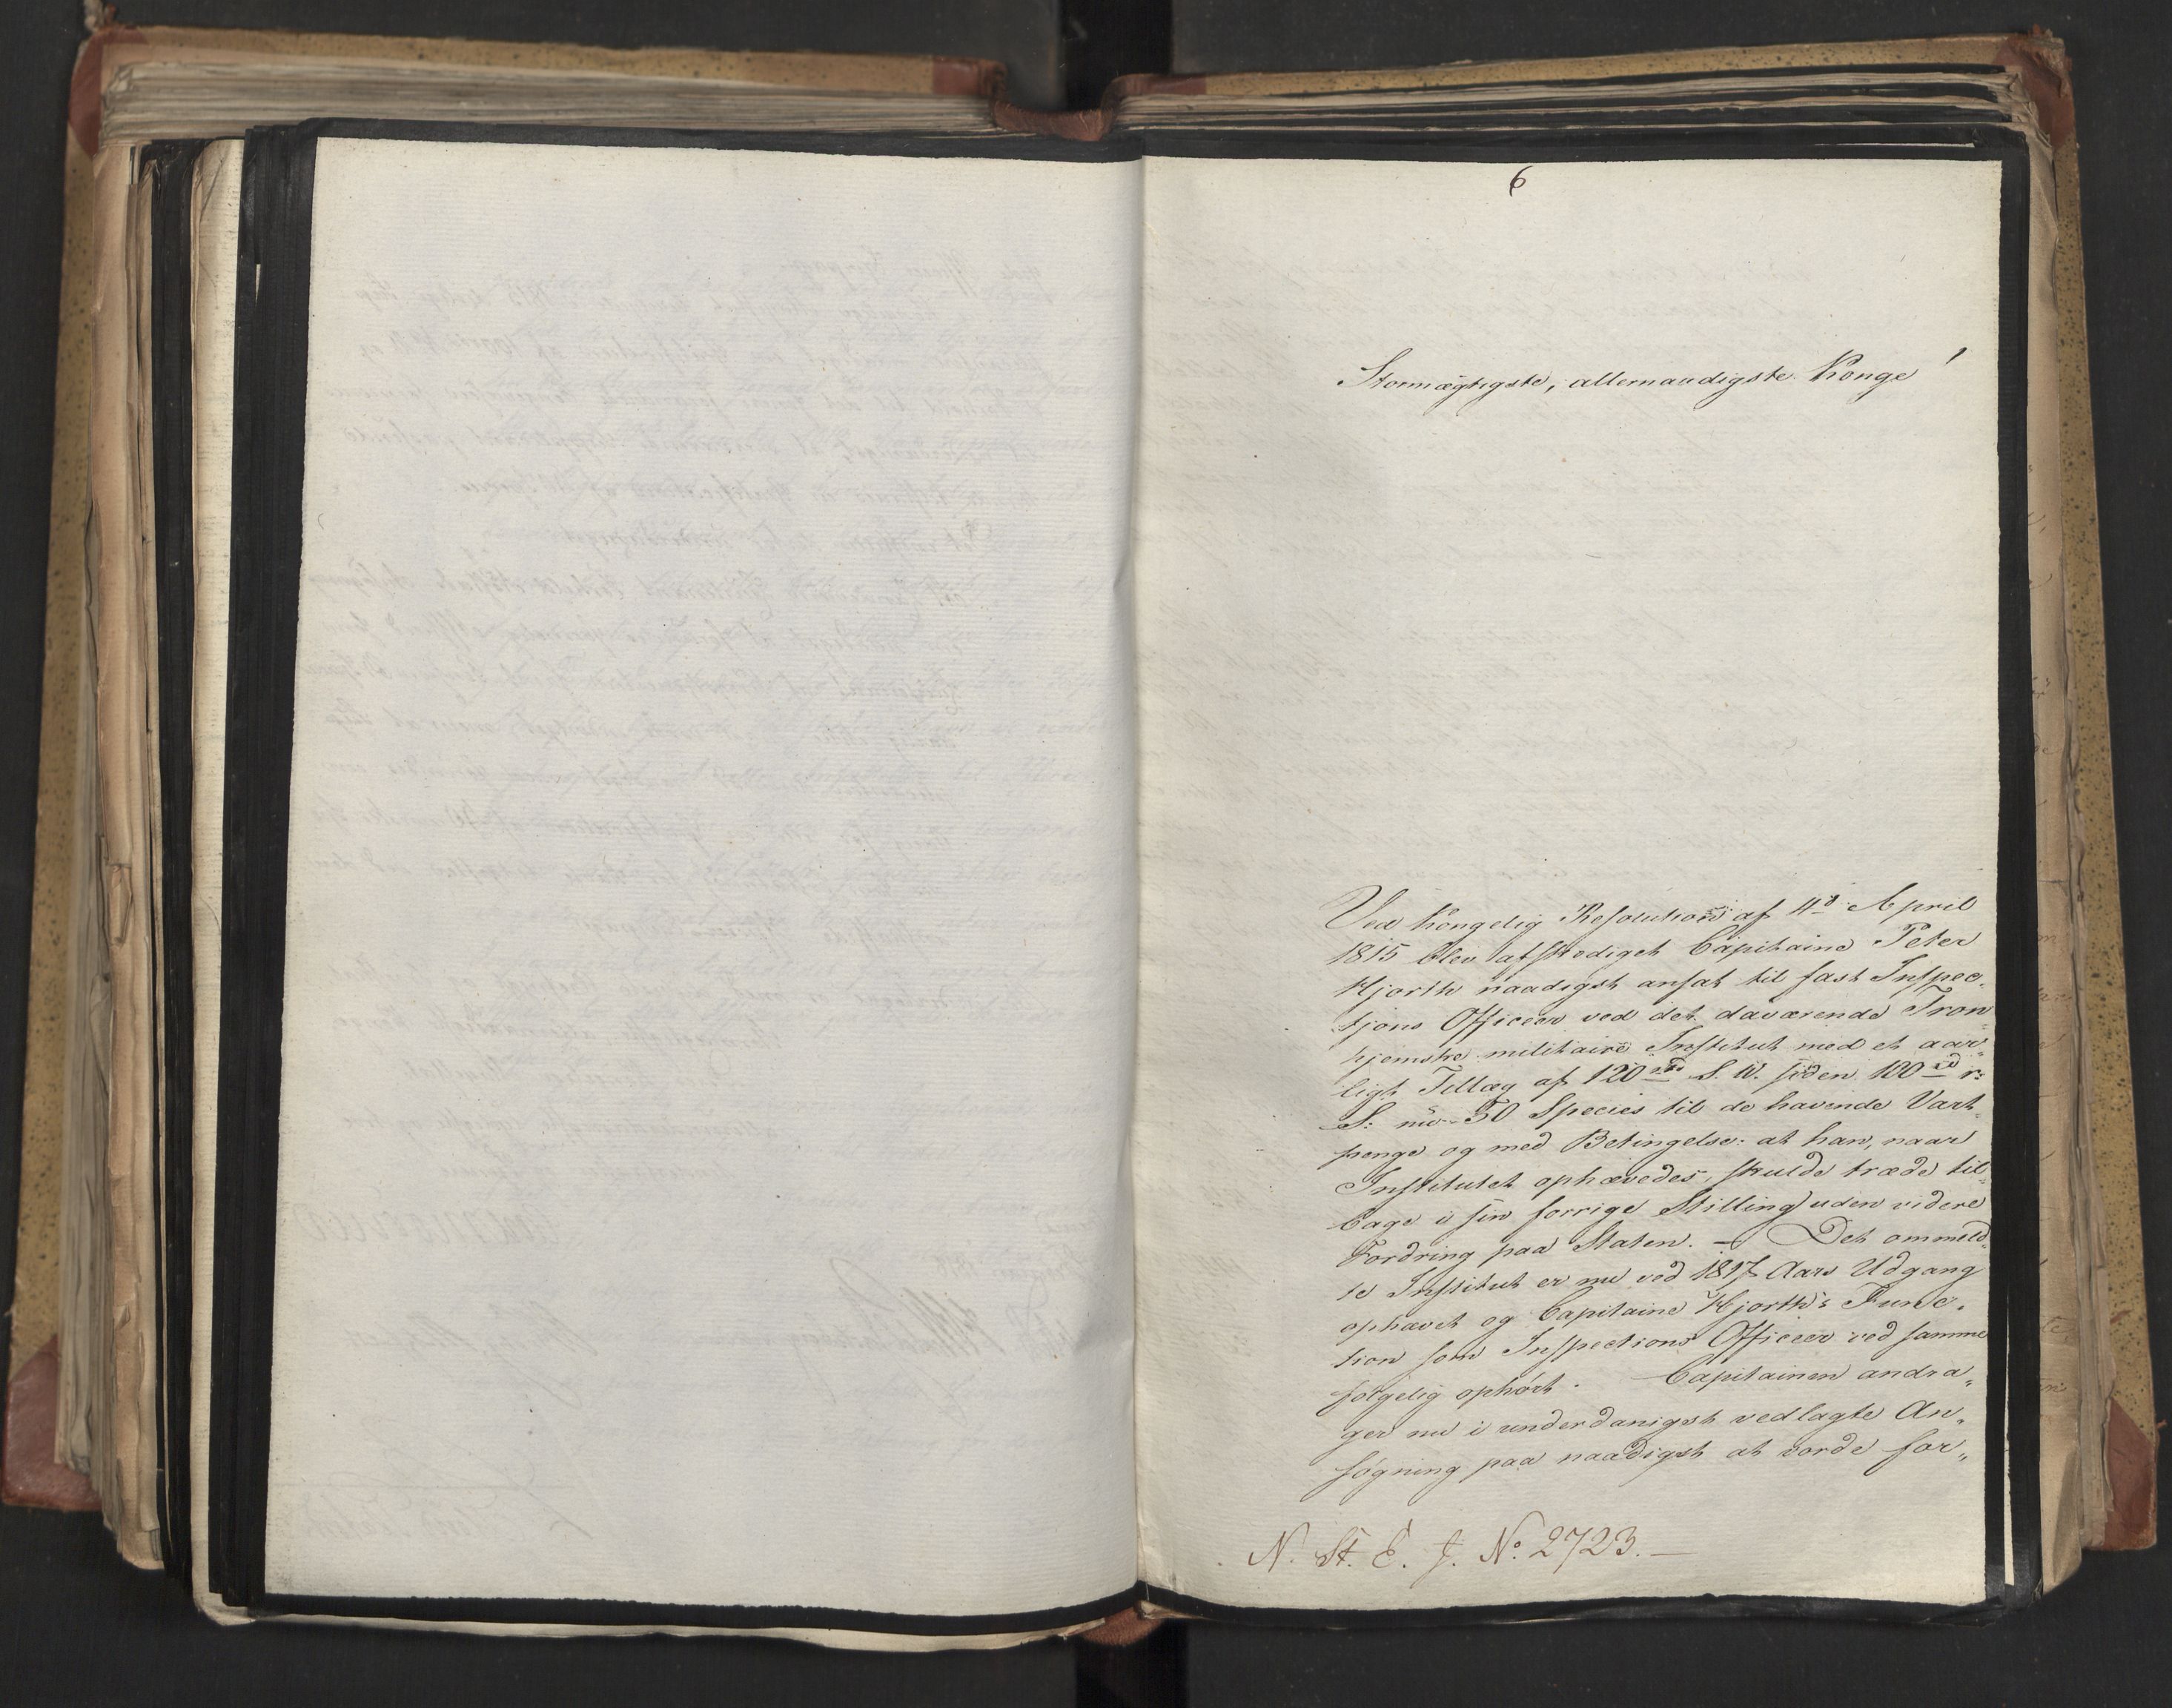 6
Stormægtigste, allernaadigste Konge!
Ved Kongelig Resolution af 11te April
1815 blev afskediget Capitaine Peter
Hjorth naadigst ansat til fast Inspec-
tjons Officeer ved det daværende Tron
hjemske militaire Institut med et aar„
ligt Tillæg af 120 rbd S. V. siden 100 rd r:
S: nu 50 Species til de havende Vart„
penge og med Betingelse: at han, naar
Institutet ophævedes, skulde træde til„
bage i sin forrige Stilling uden videre
Fordring paa Staten. — Det ommeld„
te Institut er nu ved 1817 Aars Udgang
ophævet og Capitaine Hjorth's Func-
tion som Inspections Officeer ved samme
følgelig ophört. Capitainen andra„
ger nu i underdanigst vedlagte An„
søgning paa naadigst at vorde for„
N. St. E. J. No. 2723.—